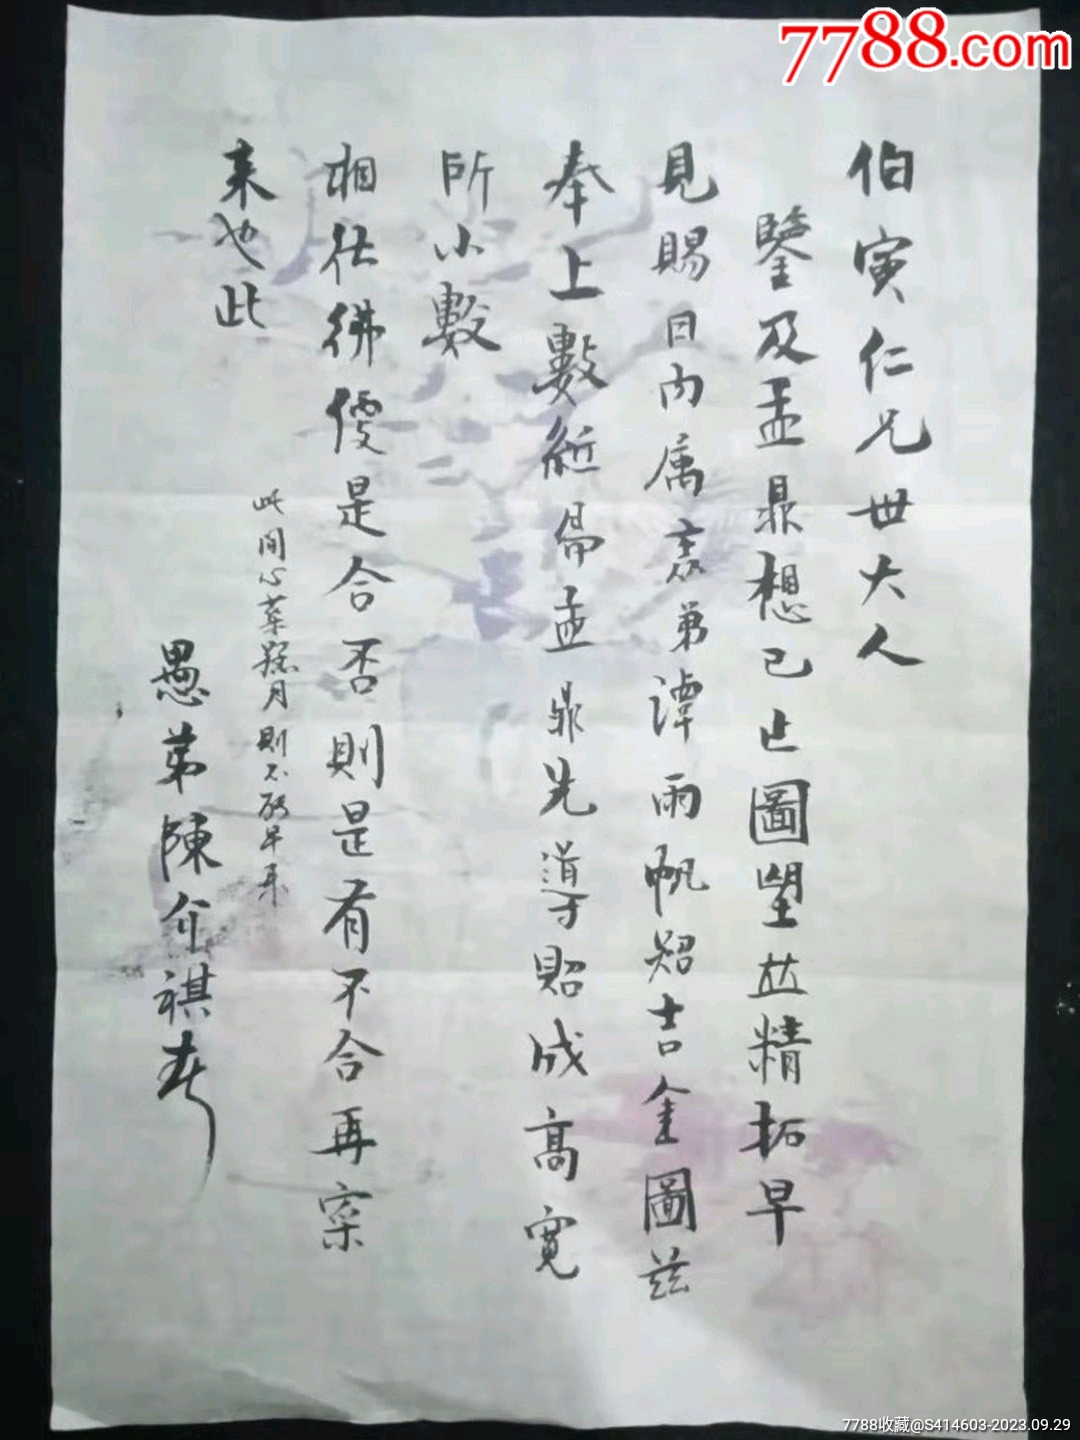 7788.com
伯寅仁兄世大人
鑒及盂鼎想已止圖望並精拓早
見賜日內属袁弟譚雨帆紹吉金圖茲
奉上數紙易盂鼎先導貽成高寬
所小數
相仕彿優是合否則是有不合再寀
来也此
此間心葉 月則不 早来
愚弟陳介祺
7788收藏@S414603-2023.09.29